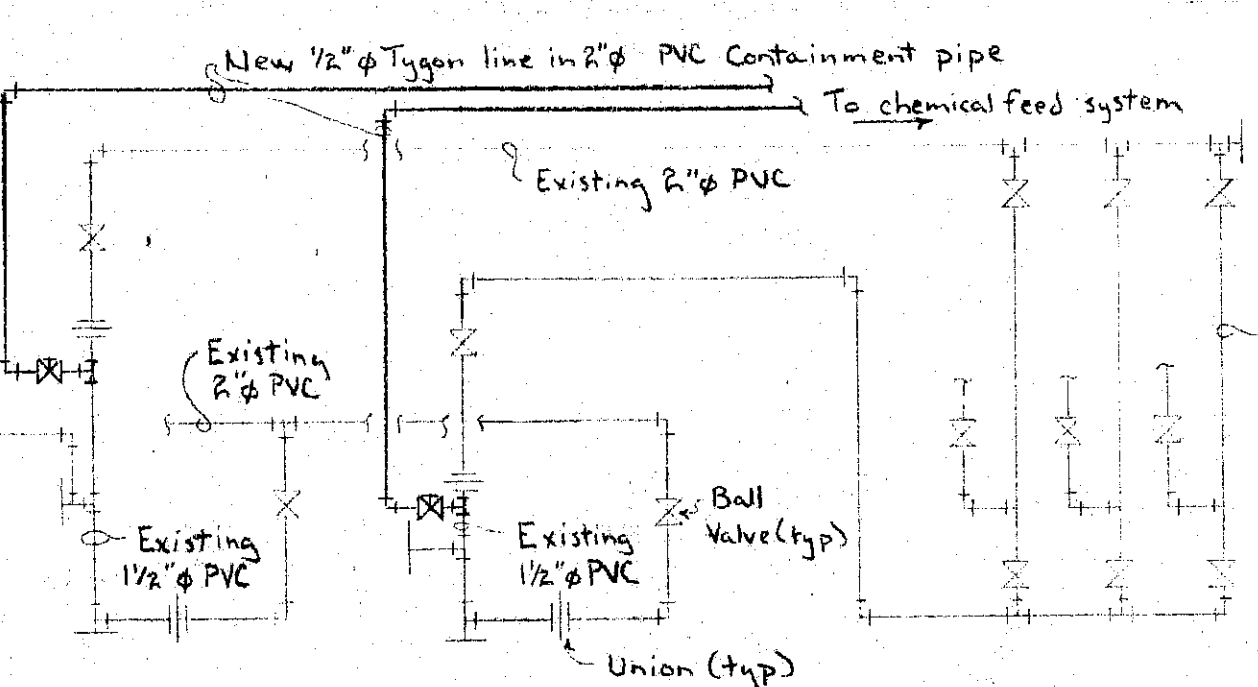 New 1/2"φ Tygon line in 2"φ PVC Containment pipe
To chemical feed system
Existing 2"φ PVC
Existing
2"φ PVC
Ball
Valve (typ)
Existing
1 1/2"φ PVC
Existing
1 1/2"φ PVC
Union (typ)